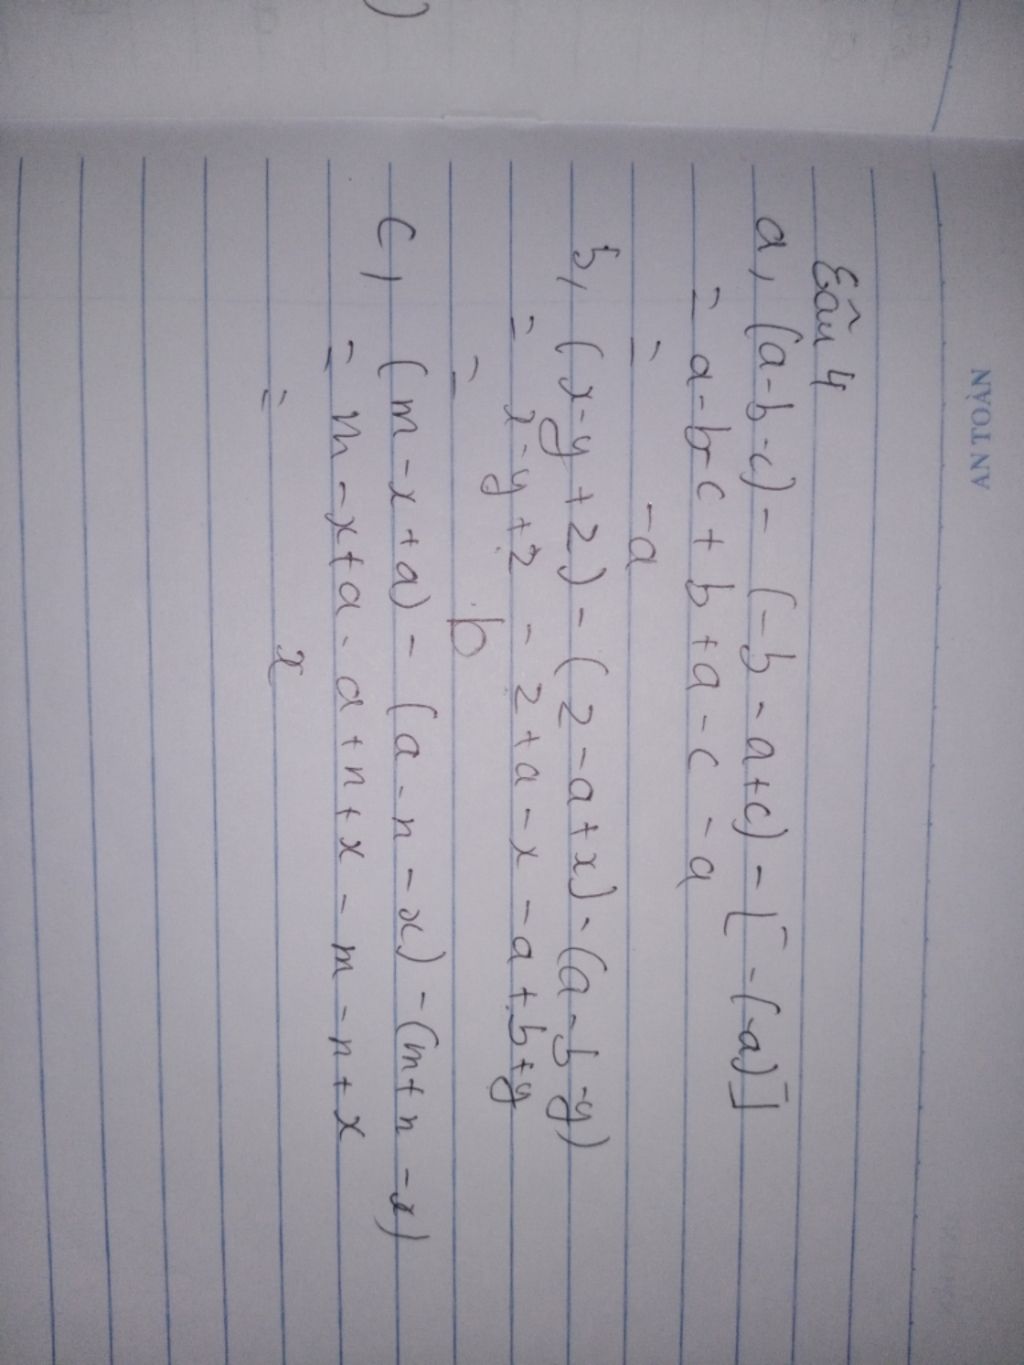 AN TOÀN
Câu 4
a, (a-b-c) - (-b-a+c) - [-(-a)]
= a-b-c+b+a-c-a
= -a
b, (x-y+2) - (2-a+x) - (a-b-y)
= x-y+2 - 2+a-x-a+b+y
= b
c, (m-x+a) - (a-n-x) - (m+n-x)
= m-x+a-a+n+x-m-n+x
= x